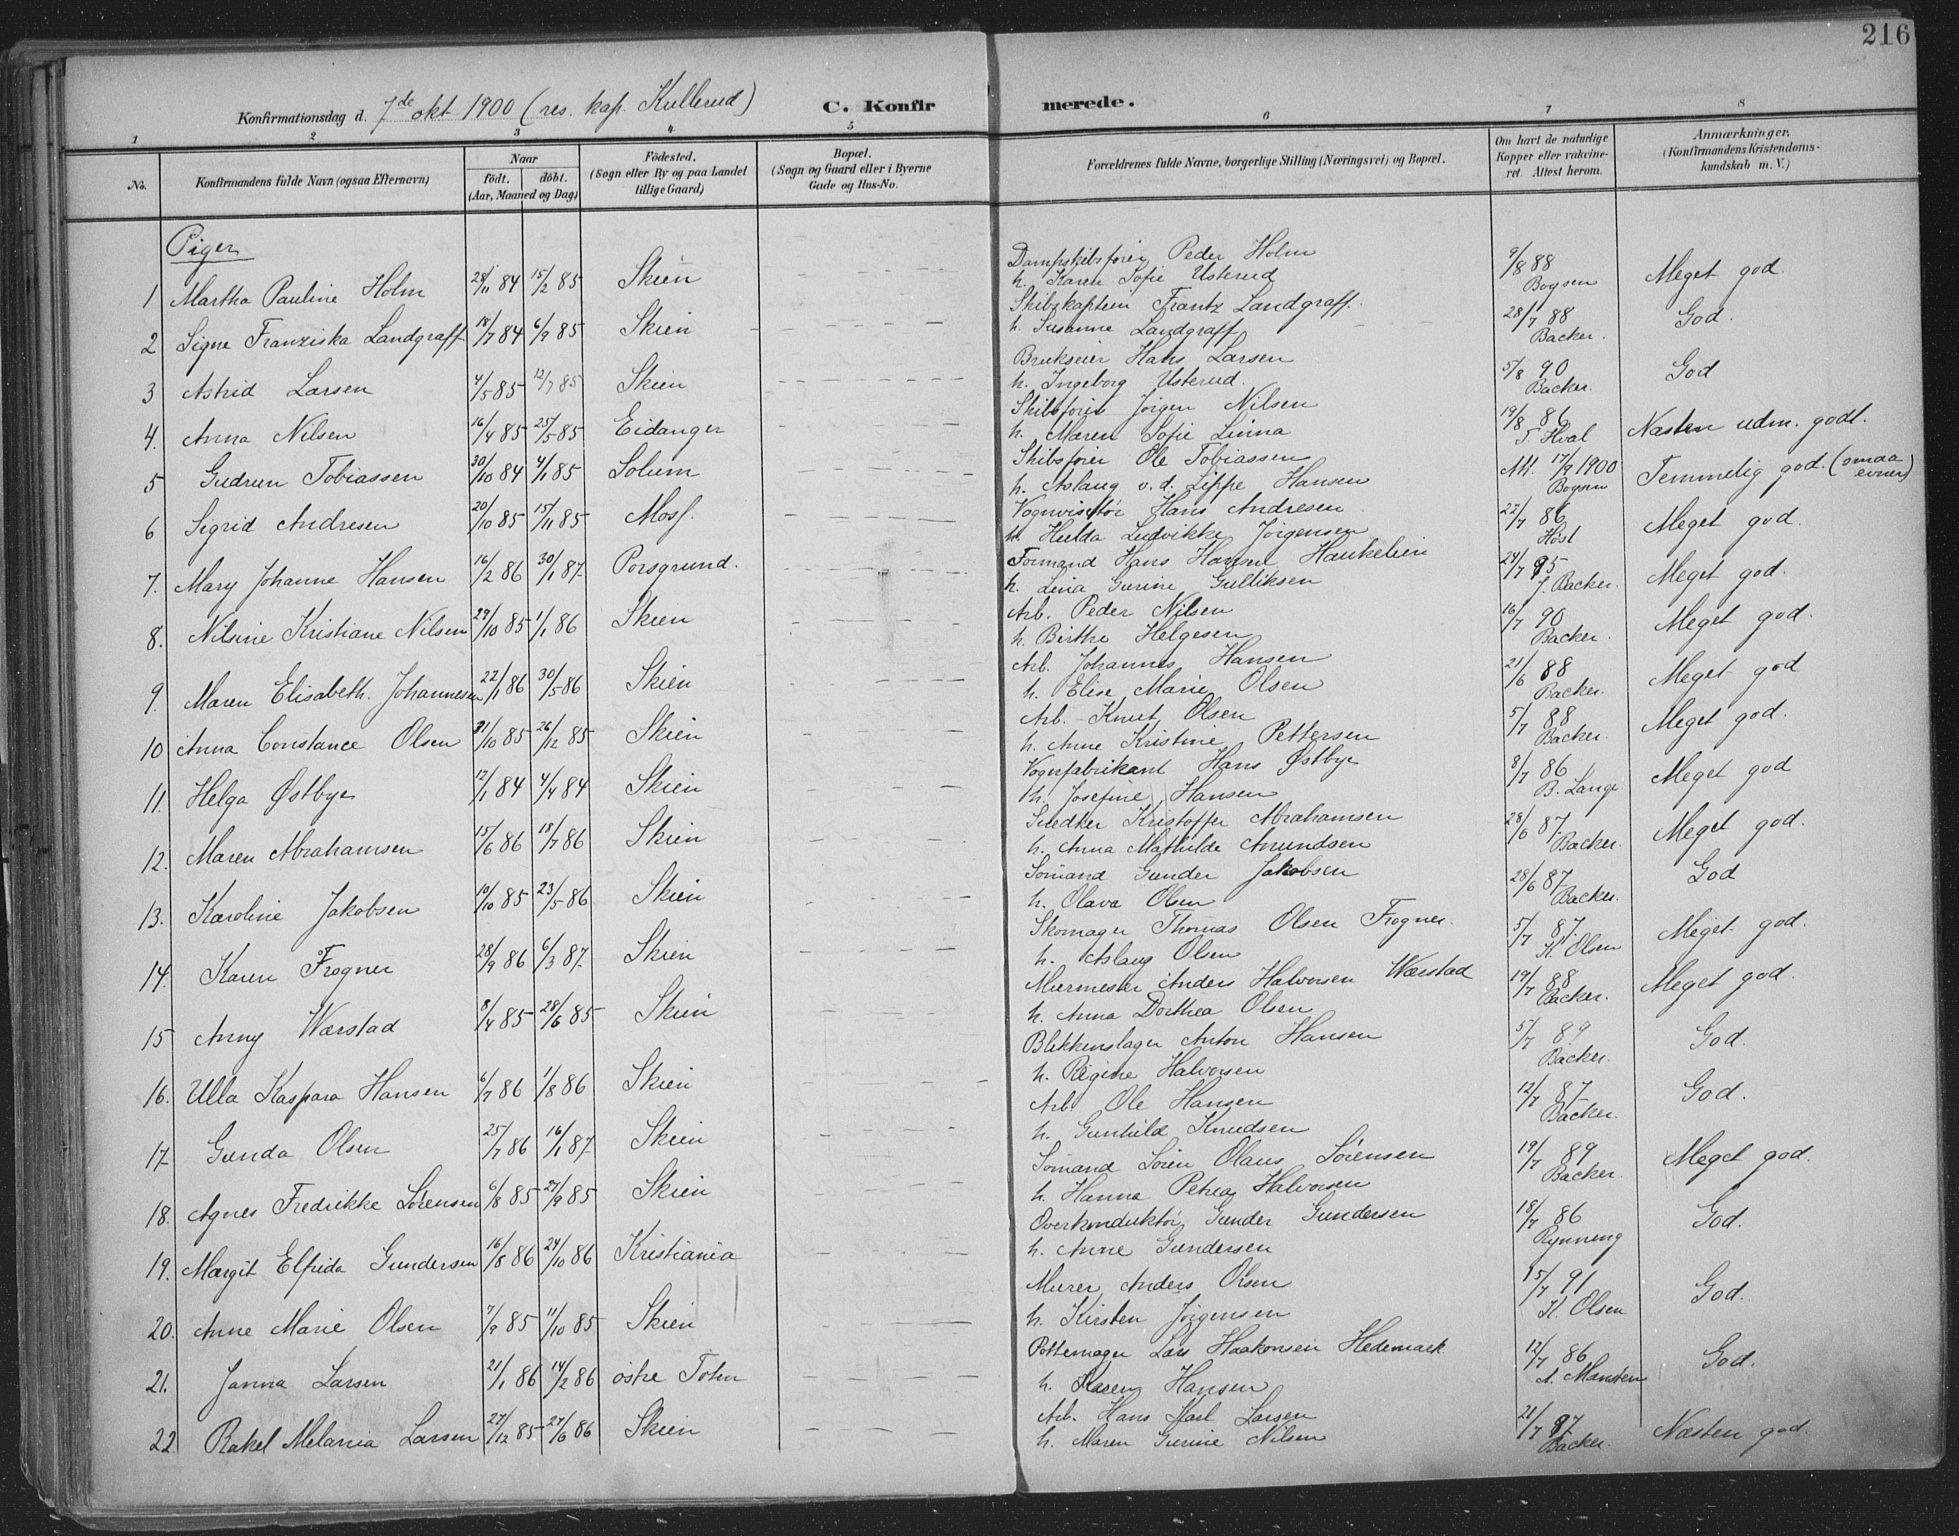 216
Konfirmationsdag d. 7de okt 1900 (res. kap. Kullerud) C. Konfirmerede.
1 2 3 4 5 6 7 8
No. Konfirmandens fulde Navn (ogsaa Efternavn) Naar födt. döbt. (Aar, Maaned og Dag) Födested. (Sogn eller By og paa Landet tillige Gaard) Bopæl. (Sogn og Gaard eller i Byerne Gade og Hus-No. Forældrenes fulde Navne, borgerlige Stilling (Næringsvei) og Bopæl. Om havt de naturlige Kopper eller vakcineret. Attest herom. Anmærkninger. (Konfirmandens Kristendomskundskab m. V.)
Piger
1 Martha Pauline Holm 28/11 84 15/2 85 Skien Dampskibsfører Peder Holm 9/8 88 Meget god.
h. Karen Sofie Usterud Boysen
2 Signe Franziska Landgraff 18/7 84 6/9 85 Skien Skibskaptein Frantz Landgraff. 28/7 88 God.
h. Susanne Landgraff Backer.
3 Astrid Larsen 4/5 85 12/7 85 Skien Brukseier Hans Larsen 5/8 90 God
h. Ingeborg Usterud. Backer.
4. Anna Nilsen 16/4 85 25/5 85 Eidanger Skibsfører Jørgen Nilsen 19/8 86 Næsten udm. godt.
h. Maren Sofie Linna T. Hval
5 Gudrun Tobiassen 30/10 84 4/1 85 Solum Skibsfører Ole Tobiassen Att. 17/9 1900 Temmelig god. (smaa evner)
h. Aslaug v. d. Lippe Hansen Boysen
6 Sigrid Andresen 20/10 85 15/11 85 Moss. Vognvisitør Hans Andresen 22/7 86 Meget god.
h. Hulda Ludvikke Jørgensen Höst
7. Mary Johanne Hansen 16/2 86 30/1 87 Porsgrund. Formand Hans Hansen Haukelien 24/7 95 Meget god.
h. Lina Gurine Gulliksen J. Backer.
8. Nilsine Kristiane Nilsen 29/10 85 1/1 86 Skien Arb. Peder Nilsen 16/7 90 Meget god.
h. Berthe Helgesen Backer.
9. Maren Elisabeth Johannesen 22/1 86 30/5 86 Skien Arb. Johannes Hansen 21/6 88 Meget god
h. Elise Marie Olsen Backer.
10 Anna Constance Olsen 31/10 85 26/12 85 Skien Arb. Knut Olsen 5/7 88 Meget god.
h. Anne Kristine Pettersen Backer.
11. Helga Østbye 12/1 84 4/4 84 Skien Vognfabrikant Hans Østbye 8/7 86 Meget god
h. Josefine Hansen B. Lange
12. Maren Abrahamsen 15/6 86 18/7 86 Skien Snedker Kristoffer Abrahamsen 28/6 87. Meget god.
h. Anna Mathilde Amundsen Backer.
13. Karoline Jakobsen 10/10 85 23/5 86 Skien Sömand Gunder Jakobsen 28/6 87 God
h. Olava Olsen Backer.
14. Karen Frogner 28/9 86 6/3 87. Skien Skomager Thomas Olsen Frogner. 5/7 87. Meget god.
h. Aslaug Olsen K. Olsen
15 Anny Wærstad 8/4 85 28/6 85 Skien Murmester Anders Halvorsen Wærstad 19/7 88 Meget god.
h. Anna Dorthea Olsen Backer.
16. Ulla Kaspara Hansen 6/7 86 1/8 86 Skien Blikkenslager Anton Hansen 5/7 89 God.
h. Regine Halvorsen Backer.
17 Gunda Olsen 25/7 86 16/1 87. Skien Arb. Ole Hansen 12/7 87 God.
h. Gunhild Knudsen Backer.
18. Agnes Fredrikke Sørensen 6/8 85 27/9 85 Skien Sömand Sören Olaus Sörensen 19/7 89 Meget god.
h. Hanna Petrea Halvorsen Backer.
19. Margit Elfrida Gundersen 16/8 86 24/10 86 Kristiania Overkonduktør Gunder Gundersen 18/7 86 God.
h. Anne Gundersen Rynning
20. Anne Marie Olsen 7/9 85 11/10 85 Skien Murer Anders Olsen 15/7 91 God.
h. Kirsten Jørgensen K. Olsen
21. Janna Larsen 21/1 86 14/2 86 östre Toten Pottemager Lars Haakonsen Hedemark 12/7 86 God.
h. Karen Hansen
22 Rakel Melania Larsen 27/12 85 27/6 86 Skien Arb. Hans Karl Larsen 21/7 87 Næsten god.
h. Maren Gurine Nilsen Backer.